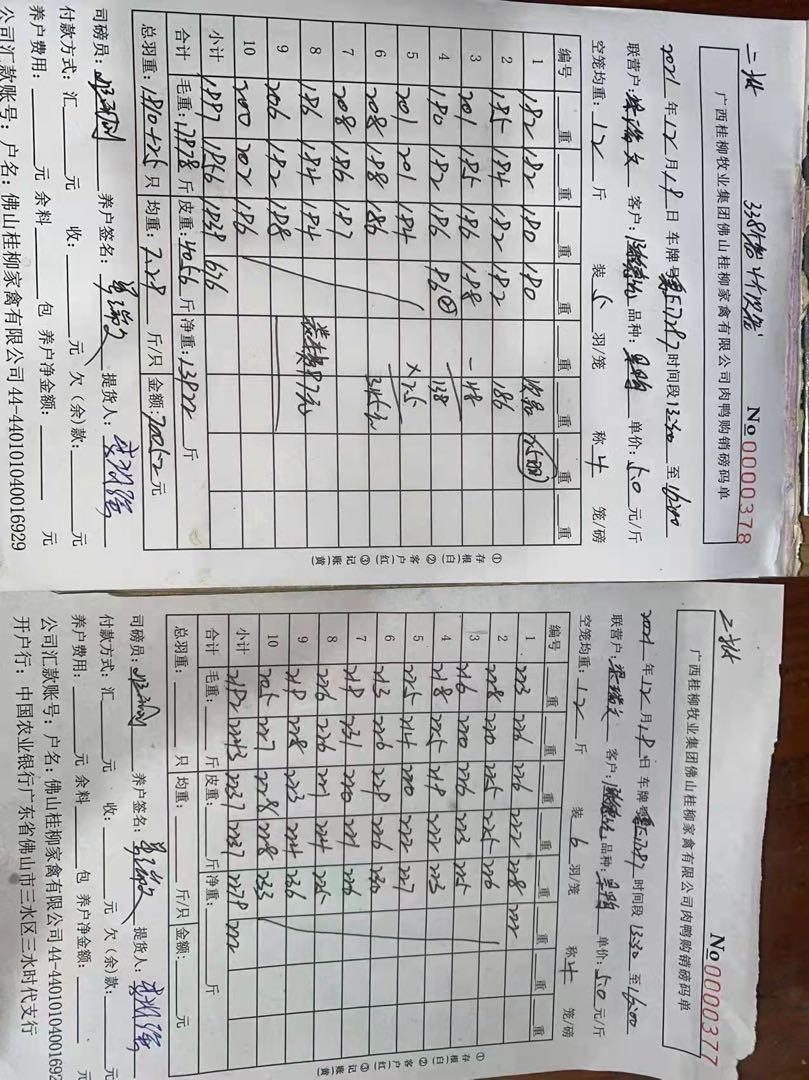 二批
338笼 4代发笼
广西桂柳牧业集团佛山桂柳家禽有限公司肉鸭购销磅码单
No 0000378
2021年12月18日 车牌号 57287 时间段 13:30 至 16:00
联营户: 客户: 品种: 单价: 5.0 元/斤
空笼均重: 12 斤 装 5 羽/笼 称 4 笼/磅
编号 重 重 重 重 重 重 重
1 182 182 180 180 次品
2 185 184 182 182 186
3 201 185 186 188 -48
4 180 182 186 86② 138
5 201 201 184 ×2.5
6 208 188 186 345元
7 208 186 187
8 186 184 184
9 206 182 188
10 200 202 186
小计 1887 1856 1839 636
合计 毛重: 17878 斤 皮重: 4056 斤 净重: 13822 斤
总羽重: 1810+25 只 均重: 7.28 斤/只 金额: 70052 元
司磅员: 养户签名: 提货人:
付款方式: 汇 元 收: 元 欠(余)款: 元
养户费用: 元 余料 包 养户净金额: 元
公司汇款账号: 户名: 佛山桂柳家禽有限公司 44-440101040016929
①存根(白) ②客户(红) ③记账(黄)
二批
广西桂柳牧业集团佛山桂柳家禽有限公司肉鸭购销磅码单
No 0000377
2021年12月18日 车牌号 57287 时间段 13:30 至 16:00
联营户: 客户: 品种: 单价: 5.0 元/斤
空笼均重: 12 斤 装 6 羽/笼 称 4 笼/磅
编号 重 重 重 重 重 重 重
1 223 226 226 222 228 222
2 228 220 225 225 226
3 216 220 226 223 225
4 218 225 218 222 223
5 225 214 220 222 227
6 213 226 229 226 230
7 219 231 220 221 226
8 226 226 221 224 225
9 219 228 223 224 236
10 205 227 228 228 233
小计 2192 2243 2237 2237 2279 222
合计 毛重: 斤 皮重: 斤 净重: 斤
总羽重: 只 均重: 斤/只 金额: 元
司磅员: 养户签名: 提货人:
付款方式: 汇 元 收: 元 欠(余)款: 元
养户费用: 元 余料 包 养户净金额: 元
公司汇款账号: 户名: 佛山桂柳家禽有限公司 44-44010104001692
开户行: 中国农业银行广东省佛山市三水区三水时代支行
①存根(白) ②客户(红) ③记账(黄)